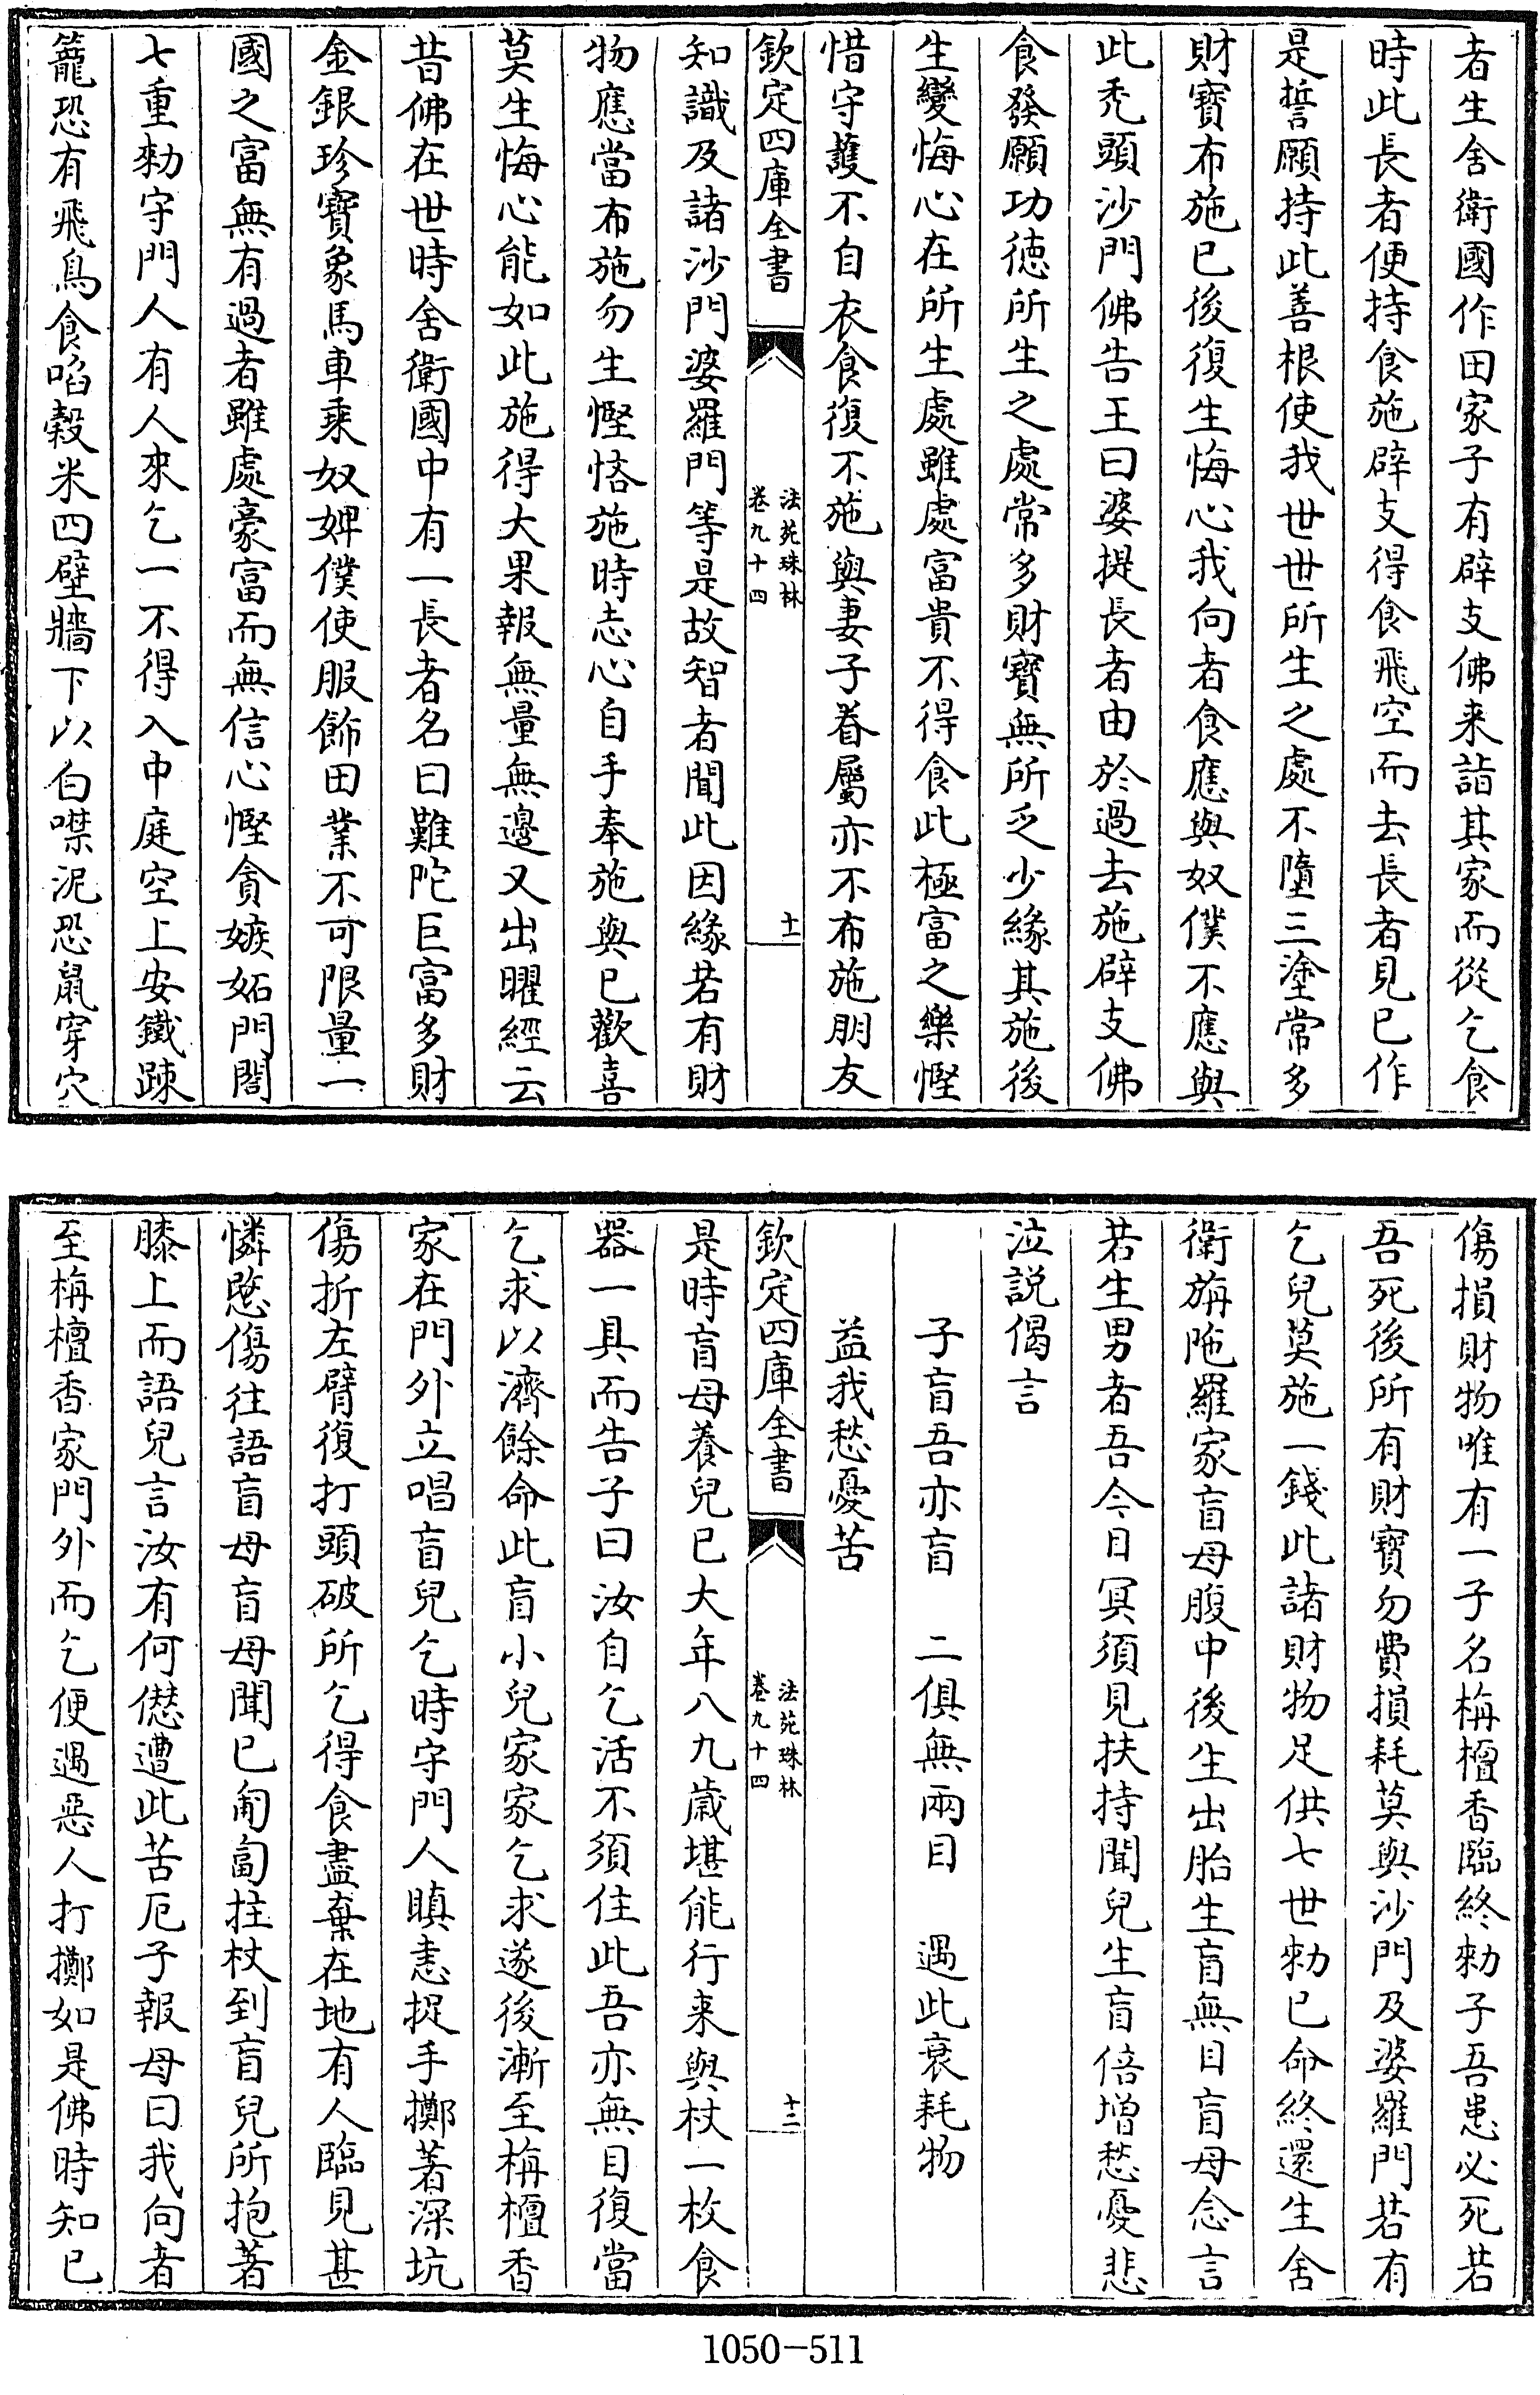 者生舍衛國作田家子有辟支佛来詣其家而從乞食
時此長者便持食施辟支得食飛空而去長者見已作
是誓願持此善根使我世世所生之處不墮三塗常多
財寶布施已後復生悔心我向者食應與奴僕不應與
此禿頭沙門佛告王曰婆提長者由於過去施辟支佛
食發願功徳所生之處常多財寶無所乏少緣其施後
生變悔心在所生處雖處富貴不得食此極富之樂慳
惜守護不自衣食復不施與妻子眷屬亦不布施朋友
欽定四庫全書
法苑珠林
卷九十四
十一
知識及諸沙門婆羅門等是故智者聞此因緣若有財
物應當布施勿生慳悋施時志心自手奉施與已歡喜
莫生悔心能如此施得大果報無量無邊又出曜經云
昔佛在世時舍衛國中有一長者名曰難陀巨富多財
金銀珍寶象馬車乗奴婢僕使服飾田業不可限量一
國之富無有過者雖處豪富而無信心慳貪嫉妬門閤
七重勅守門人有人來乞一不得入中庭空上安鐵疎
籠恐有飛鳥食啗穀米四壁牆下以白㗲泥恐鼠穿穴
傷損財物唯有一子名栴檀香臨終勅子吾患必死若
吾死後所有財寶勿費損耗莫與沙門及婆羅門若有
乞兒莫施一錢此諸財物足供七世勅已命終還生舍
衛旃陁羅家盲母腹中後生出胎生盲無目盲母念言
若生男者吾今日冥須見扶持聞兒生盲倍增愁憂悲
泣説偈言
子盲吾亦盲　二俱無兩目　遇此衰耗物
益我愁憂苦
欽定四庫全書
法苑珠林
卷九十四
十二
是時盲母養兒已大年八九歲堪能行来與杖一枚食
器一具而告子曰汝自乞活不須住此吾亦無目復當
乞求以濟餘命此盲小兒家家乞求遂後漸至栴檀香
家在門外立唱盲兒乞時守門人瞋恚捉手擲著深坑
傷折左臂復打頭破所乞得食盡棄在地有人臨見甚
憐愍傷往語盲母盲母聞已匍匐拄杖到盲兒所抱著
膝上而語兒言汝有何愆遭此苦厄子報母曰我向者
至栴檀香家門外而乞便遇惡人打擲如是佛時知已
1050-511